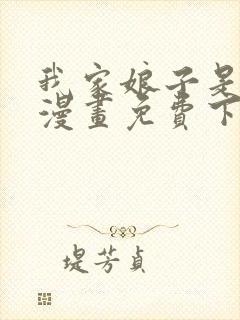 我家娘子是
漫畫免費下
堤芳貞